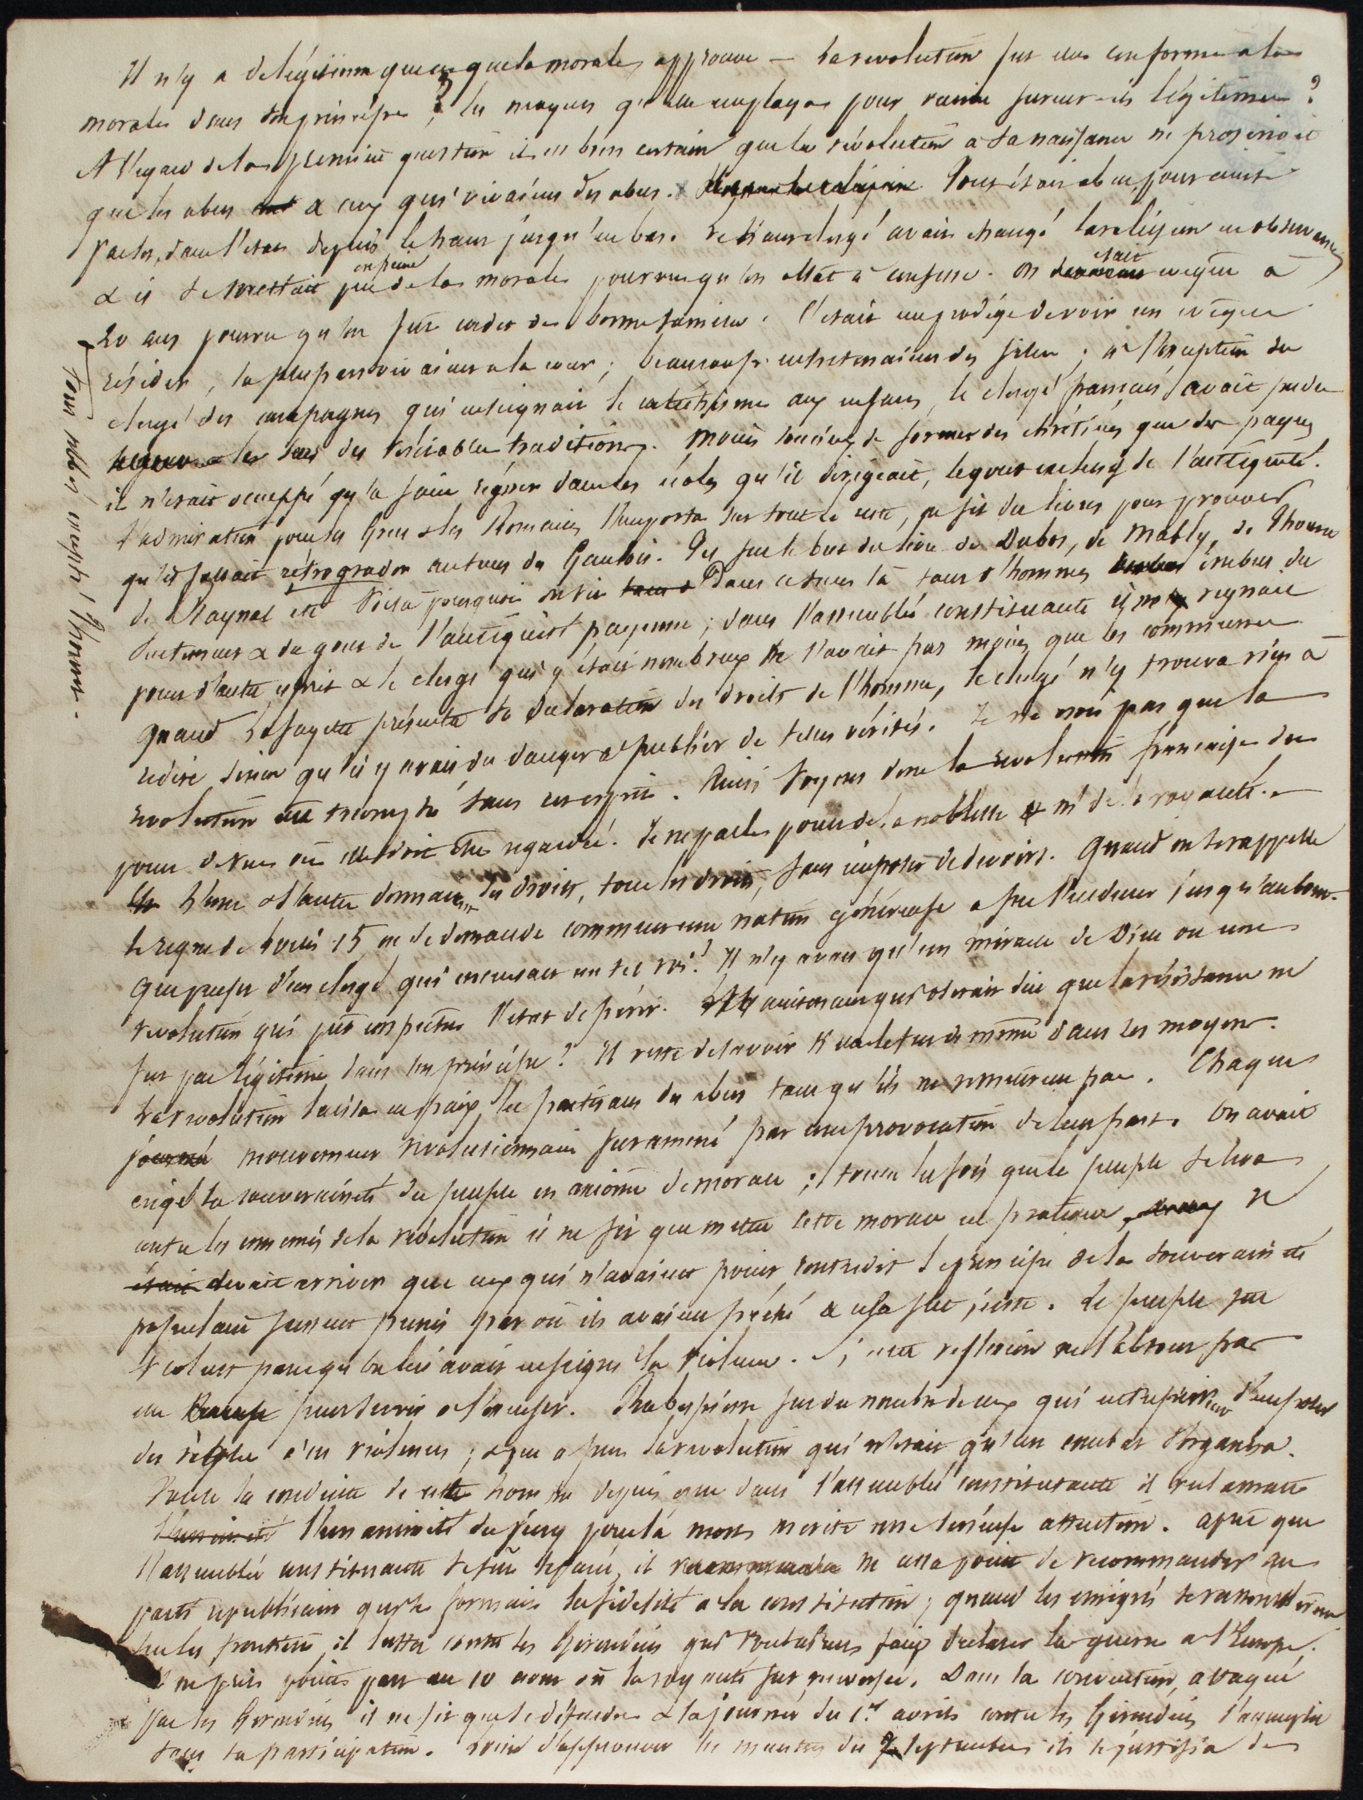 Il n'y a de légitime que ce que la morale approuve — la revolution fut elle conforme a la
morale dans son principe ? les moyens qu'elle employa pour vaincre furent-ils légitimes ?
A l'egard de la premiere question il est bien certain que la révolution a sa naissance ne proscrivait
que les abus & ceux qui vivaient des abus. Tout était abus, pour ainsi
parler, dans l'etat depuis le haut jusqu'en bas. Le haut clergé avait changé la religion en observances
& il se mettait en peine peu de la morale pourvu qu'on allât a confesse. On était eveque à
20 ans pourvu qu'on fut cadet de bonne famille. C'etait un prodige de voir un eveque
résider, la plupart vivaient a la cour ; beaucoup entretenaient des filles ; a l'exception du
clergé des campagnes qui enseignait le catéchisme aux enfans, le clergé français avait perdu
les des véritables traditions. Moins soucieux de former des chrétiens que des payens
il n'etait occuppé qu'a faire régner dans les écoles qu'il dirigeait, le gout exclusif de l'antiquité.
L'admiration pour les Grecs & les Romains l'emporta sur tout le reste, on fit des livres pour prouver
qu'il fallait rétrograder au tems des Gaulois. Tel fut le but des livres de Dubos, de Mably, de Thouret
de Raynal etc. Voila pourquoi on vit dans ce tems là tant d'hommes imbus de
doctrines & du gout de l'antiquité payenne ; dans l'assemblée constituante il ne regnait
point d'autre esprit & le clergé qui y était nombreux ne l'avait pas moins que les communes
quand Lafayette présenta sa declaration des droits de l'homme, le clergé n'y trouva rien à
redire sinon qu'il y avait du danger a publier de telles vérités. Je ne crois pas que la
revolution eut triomphé sans cet esprit. Ainsi voyons donc la revolution française du
point de vue où elle doit etre regardée. Je ne parle point de la noblesse ni de la royauté.
L'une & l'autre donnaient des droits, tous les droits, sans imposer de devoirs. Quand on se rappelle
le regne de Louis 15, on se demande comment une nation généreuse a pu l'endurer jusqu'au bout.
Que penser d'un clergé qui encensait un tel roi ? Il n'y avait qu'un miracle de Dieu ou une
revolution qui put empecher l'etat de périr. qui oserait dire que la résistance ne
fut pas légitime dans son principe ? Il reste a savoir si elle le fut de même dans les moyens.
La revolution laissa en paix les partisans des abus tant qu'ils ne remuerent pas. Chaque
mouvement revolutionnaire fut amené par une provocation de leur part. On avait
erigé la souveraineté du peuple en axiome de morale ; toutes les fois que le peuple se leva
contre les ennemis de la révolution il ne fit que mettre cette morale en pratique, il
devait arriver que ceux qui n'avaient point contredit le principe de la souveraineté
populaire fussent punis par où ils avaient péché & cela fut juste. Le peuple fut
violent parce qu'on lui avait enseigné la violence. Si cette reflexion ne l'absout pas
elle peut servir a l'excuser. Robespierre fut du nombre de ceux qui entreprirent d'imposer
des regles a ces violences ; & que apres la revolution qui n'etait qu'un combat s'organisa.
Toute la conduite de cette homme depuis que dans l'assemblée constituante il reclamait
l'unanimité du jury pour la mort merite une serieuse attention. Après que
l'assemblée constituante se fut séparée, il ne cessa point de recommander au
parti republicain qui se formait la fidelité a la constitution ; quand les emigrés se rassemblerent
sur les frontieres, il lutta contre les Girondins qui voulaient faire declarer la guerre a l'Europe.
Il ne prit point part au 10 aout où la royauté fut renversée. Dans la convention, attaqué
par les Girondins il ne fit que se défendre & la journée du 1er avril contre les Girondins s'accomplit
sans sa participation. Loin d'approuver les meurtres du 2 septembre il se justifia de
tous nobles excepté Thouret.